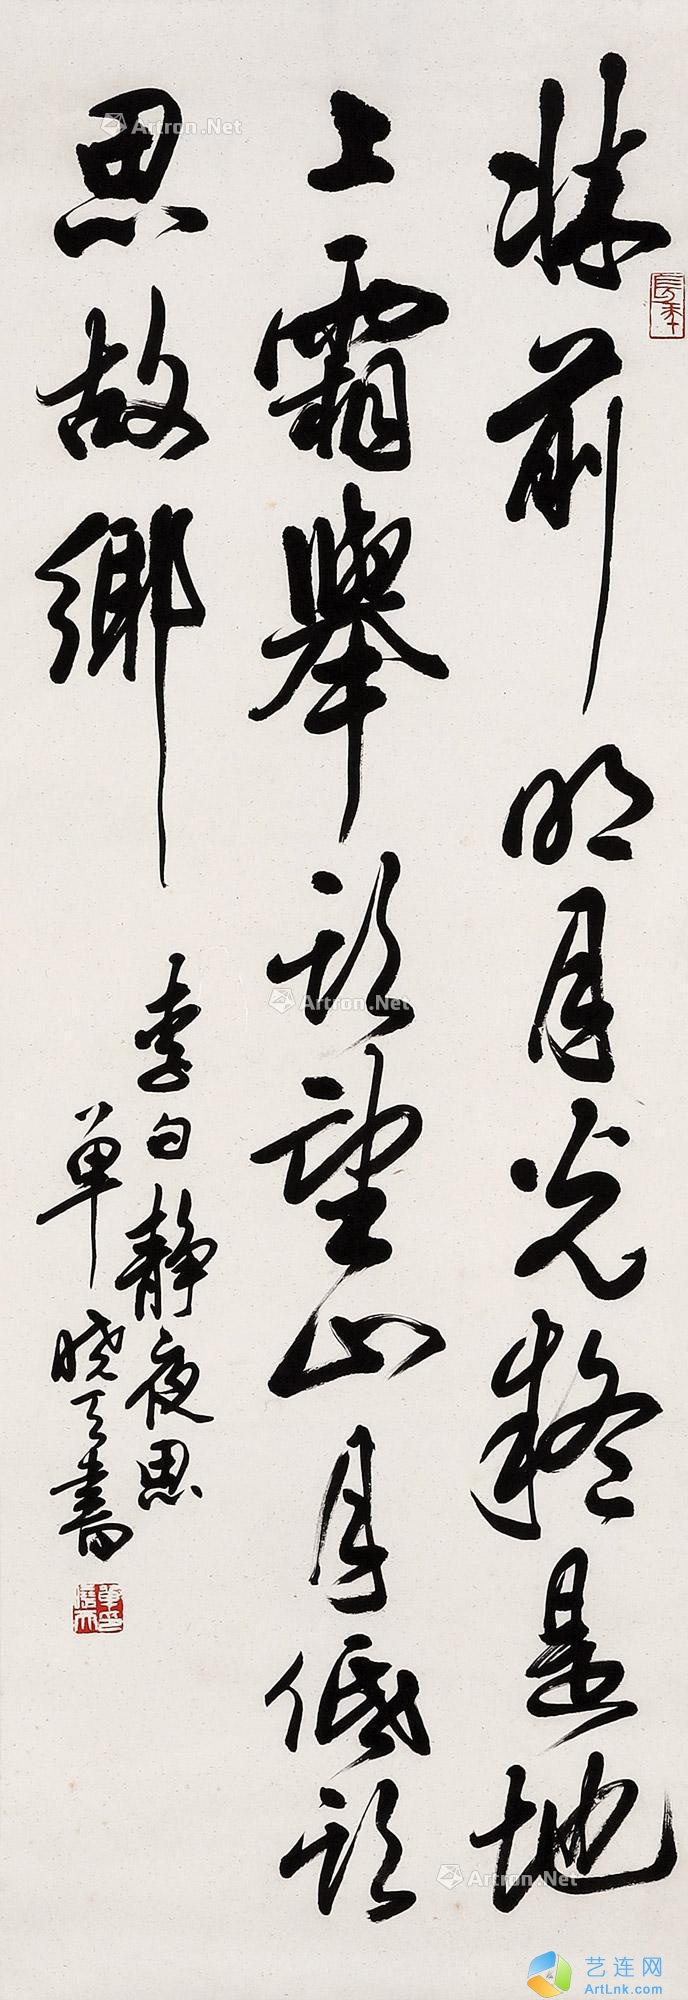 牀前明月光疑是地
上霜舉頭望山月低頭
思故鄉
李白靜夜思
单曉天書
長年
單曉天印
Artron.Net
Artron.Net
Artron.Net
艺连网
ArtLnk.Com